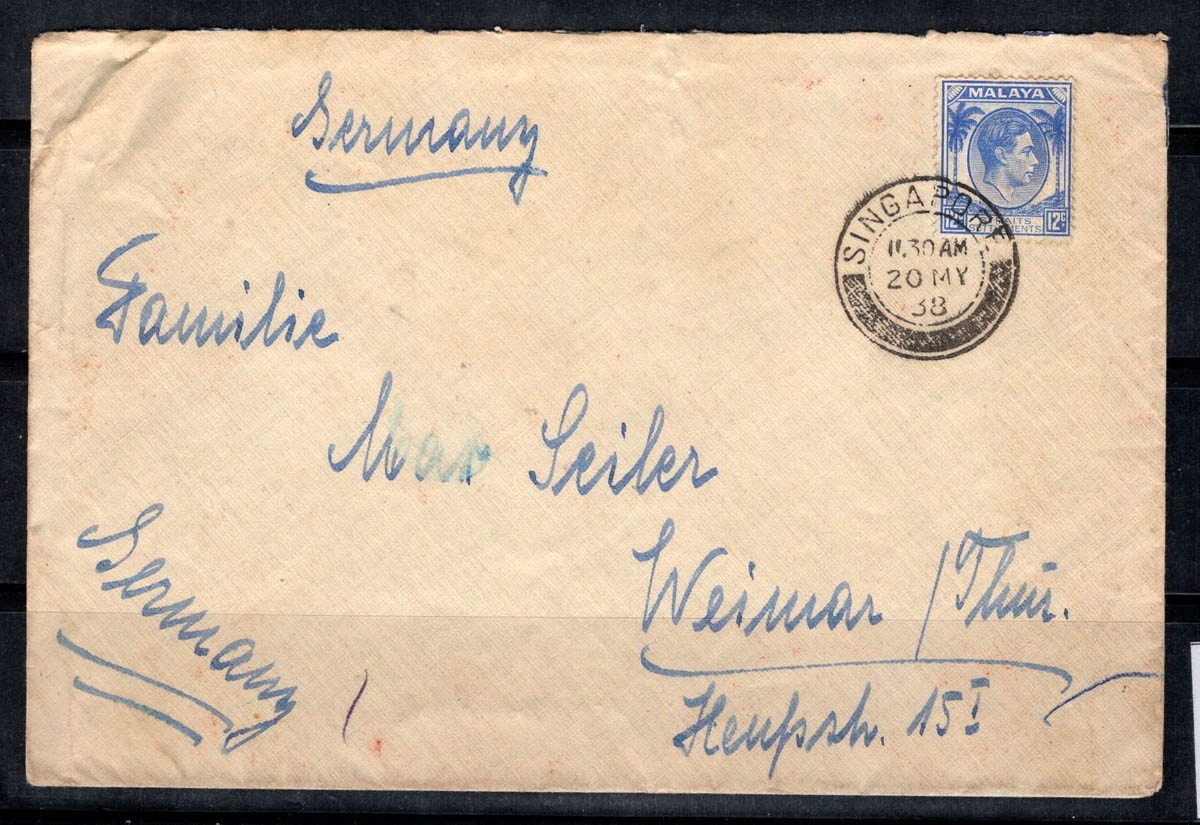 Germany
MALAYA
12c STRAITS SETTLEMENTS 12c
SINGAPORE
11.30 AM
20 MY
38
Familie
Max Seiler
Weimar / Thür.
Germany
15 I